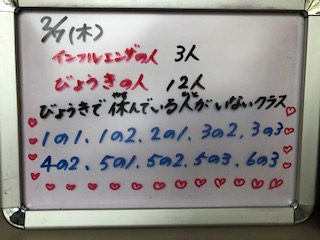 2/7(木)
インフルエンザの人 3人
びょうきの人 12人
びょうきで休んでいる人がいないクラス
1の1, 1の2, 2の1, 3の2, 3の3
4の2, 5の1, 5の2, 5の3, 6の3